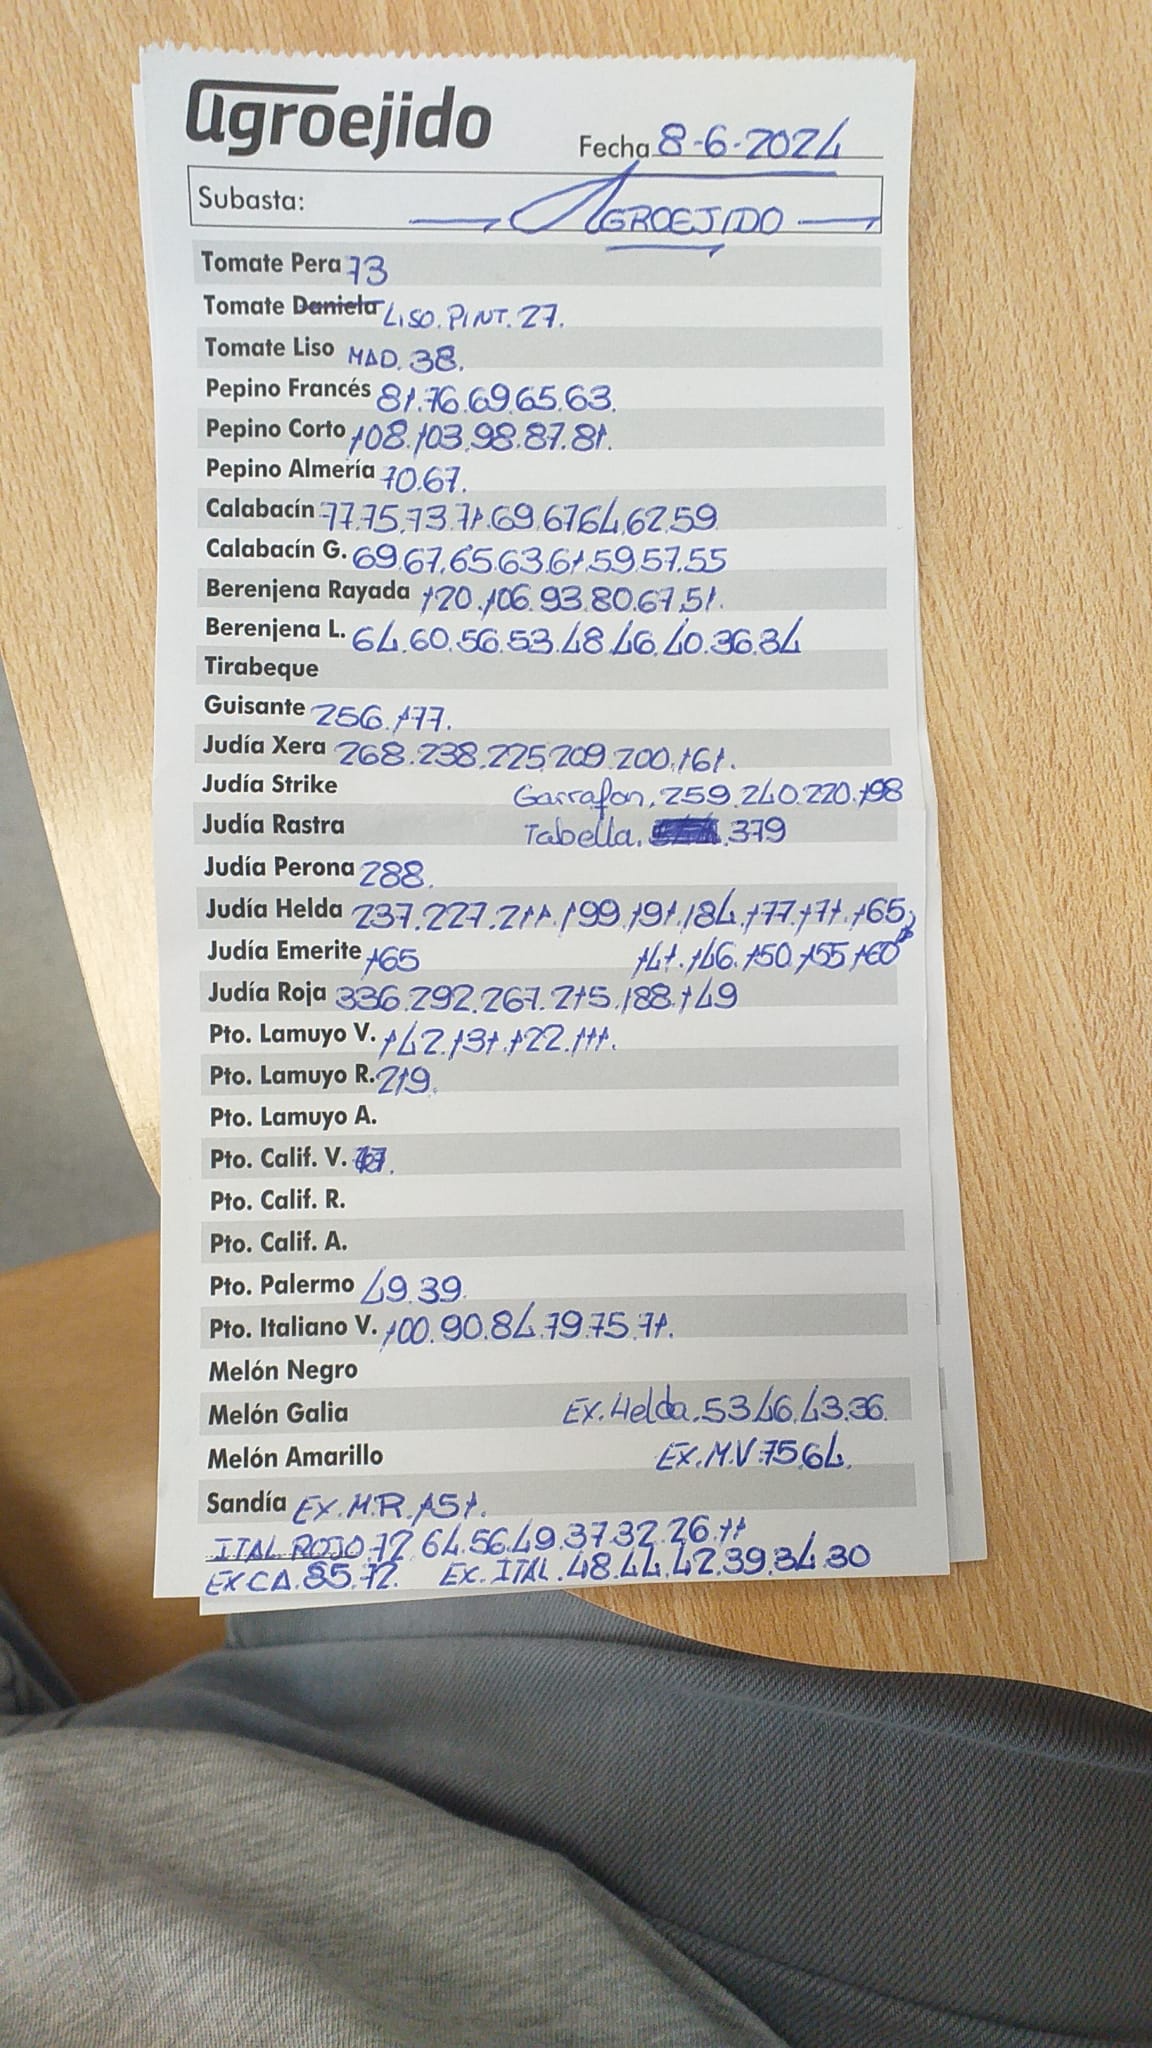 agroejido
Fecha 8-6-2024
Subasta: AGROEJIDO
Tomate Pera 73
Tomate Daniela LISO. PINT. 27.
Tomate Liso MAD. 38.
Pepino Francés 81.76.69.65.63.
Pepino Corto 108.103.98.87.81.
Pepino Almería 70.67.
Calabacín 77.75.73.71.69.67.64.62.59
Calabacín G. 69.67.65.63.61.59.57.55
Berenjena Rayada 120.106.93.80.67.51.
Berenjena L. 64.60.56.53.48.46.40.36.34
Tirabeque
Guisante 256.177.
Judía Xera 268.238.225.209.200.161.
Judía Strike Garrafon. 259.240.220.198
Judía Rastra Tabella. 379
Judía Perona 288.
Judía Helda 237.227.211.199.191.184.177.171.165
Judía Emerite 165 141.146.150.155.160
Judía Roja 336.292.267.215.188.149
Pto. Lamuyo V. 142.131.122.111.
Pto. Lamuyo R. 219.
Pto. Lamuyo A.
Pto. Calif. V.
Pto. Calif. R.
Pto. Calif. A.
Pto. Palermo 49.39.
Pto. Italiano V. 100.90.84.79.75.71.
Melón Negro
Melón Galia Ex. Helda. 53.46.43.36.
Melón Amarillo EX. M.V. 75.64.
Sandía EX. M.R. 151.
ITAL ROJO. 72.64.56.49.37.32.26.11
EX CA. 85.72. EX. ITAL. 48.44.42.39.34.30